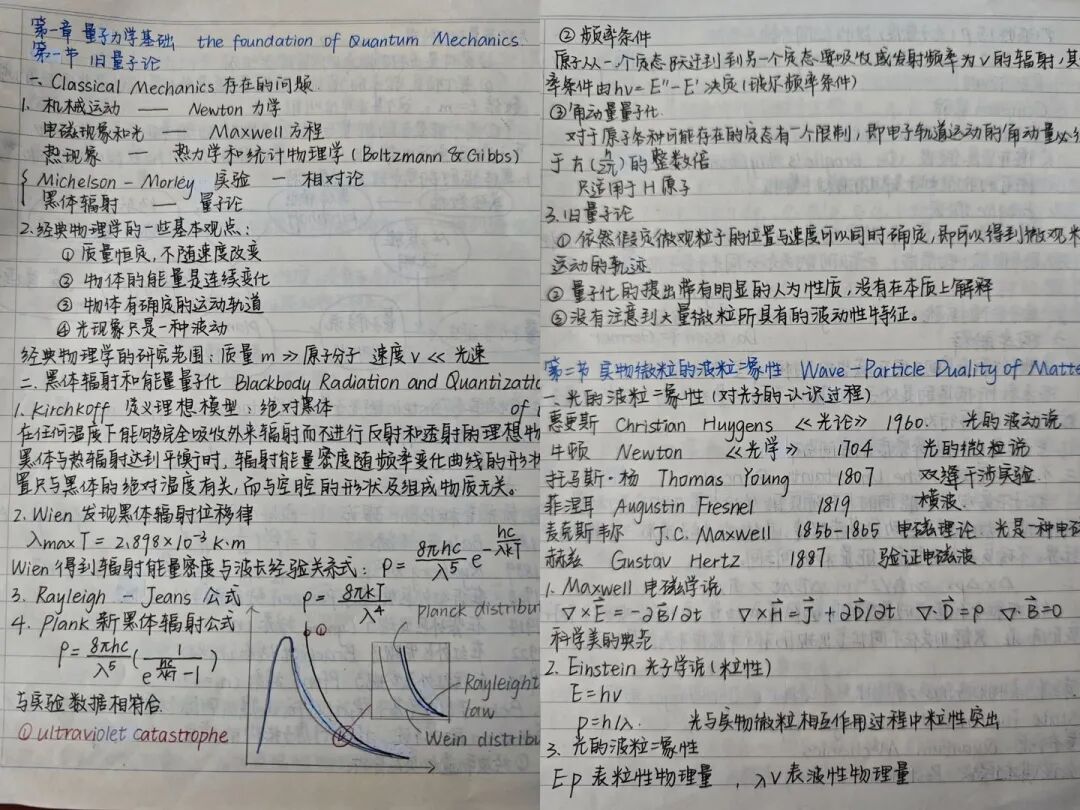 第一章 量子力学基础 the foundation of Quantum Mechanics.
第一节 旧量子论
一、Classical Mechanics 存在的问题.
1. 机械运动 —— Newton 力学
电磁现象和光 —— Maxwell 方程
热现象 — 热力学和统计物理学 (Boltzmann & Gibbs)
{ Michelson - Morley 实验 — 相对论
黑体辐射 —— 量子论
2.经典物理学的一些基本观点:
① 质量恒定, 不随速度改变
② 物体的能量是连续变化
③ 物体有确定的运动轨道
④ 光现象只是一种波动
经典物理学的研究范围: 质量 m >> 原子分子 速度 v << 光速
二、黑体辐射和能量量子化 Blackbody Radiation and Quantizatio
1. Kirchkoff 定义理想模型: 绝对黑体 of
在任何温度下能够完全吸收外来辐射而不进行反射和透射的理想物
黑体与热辐射达到平衡时, 辐射能量密度随频率变化曲线的形状
置只与黑体的绝对温度有关, 而与空腔的形状及组成物质无关。
2. Wien 发现黑体辐射位移律
λmax T = 2.898×10⁻³ K·m
Wien 得到辐射能量密度与波长经验关系式: ρ = 8πhc/λ⁵ e^(-hc/λkT)
3. Rayleigh - Jeans 公式 ρ = 8πkT/λ⁴
4. Plank 新黑体辐射公式
ρ = 8πhc/λ⁵ (1/(e^(hc/λkT) - 1))
与实验数据相符合.
① ultraviolet catastrophe
①
②
Planck distribu
Rayleigh
law
Wein distribu
② 频率条件
原子从一个定态跃迁到到另一个定态需吸收或发射频率为 ν 的辐射, 其
率条件由 hν = E″ - E′ 决定 (玻尔频率条件)
③ 角动量量子化.
对于原子各种可能存在的定态有一个限制, 即电子轨道运动的角动量必
于 ħ (h/2π) 的整数倍
只适用于 H 原子
3. 旧量子论
① 依然假定微观粒子的位置与速度可以同时确定, 即可以得到微观
运动的轨迹
② 量子化的提出带有明显的人为性质, 没有在本质上解释
③ 没有注意到大量微粒所具有的波动性特征。
第二节 实物微粒的波粒二象性 Wave - Particle Duality of Matte
一、光的波粒二象性 (对光子的认识过程)
惠更斯 Christian Huygens 《光论》 1960. 光的波动说
牛顿 Newton 《光学》 1704 光的微粒说
托马斯·杨 Thomas Young 1807 双缝干涉实验.
菲涅耳 Augustin Fresnel 1819 横波.
麦克斯韦尔 J.C. Maxwell 1856-1865 电磁理论. 光是一种电磁
赫兹 Gustav Hertz 1887 验证电磁波
1. Maxwell 电磁学说
∇×E⃗ = -∂B⃗/∂t ∇×H⃗ = J⃗ + ∂D⃗/∂t ∇·D⃗ = ρ ∇·B⃗ = 0
科学美的典范
2. Einstein 光子学说 (粒性)
E = hν
p = h/λ. 光与实物微粒相互作用过程中粒性突出
3. 光的波粒二象性
E p 表粒性物理量 , λ ν 表波性物理量